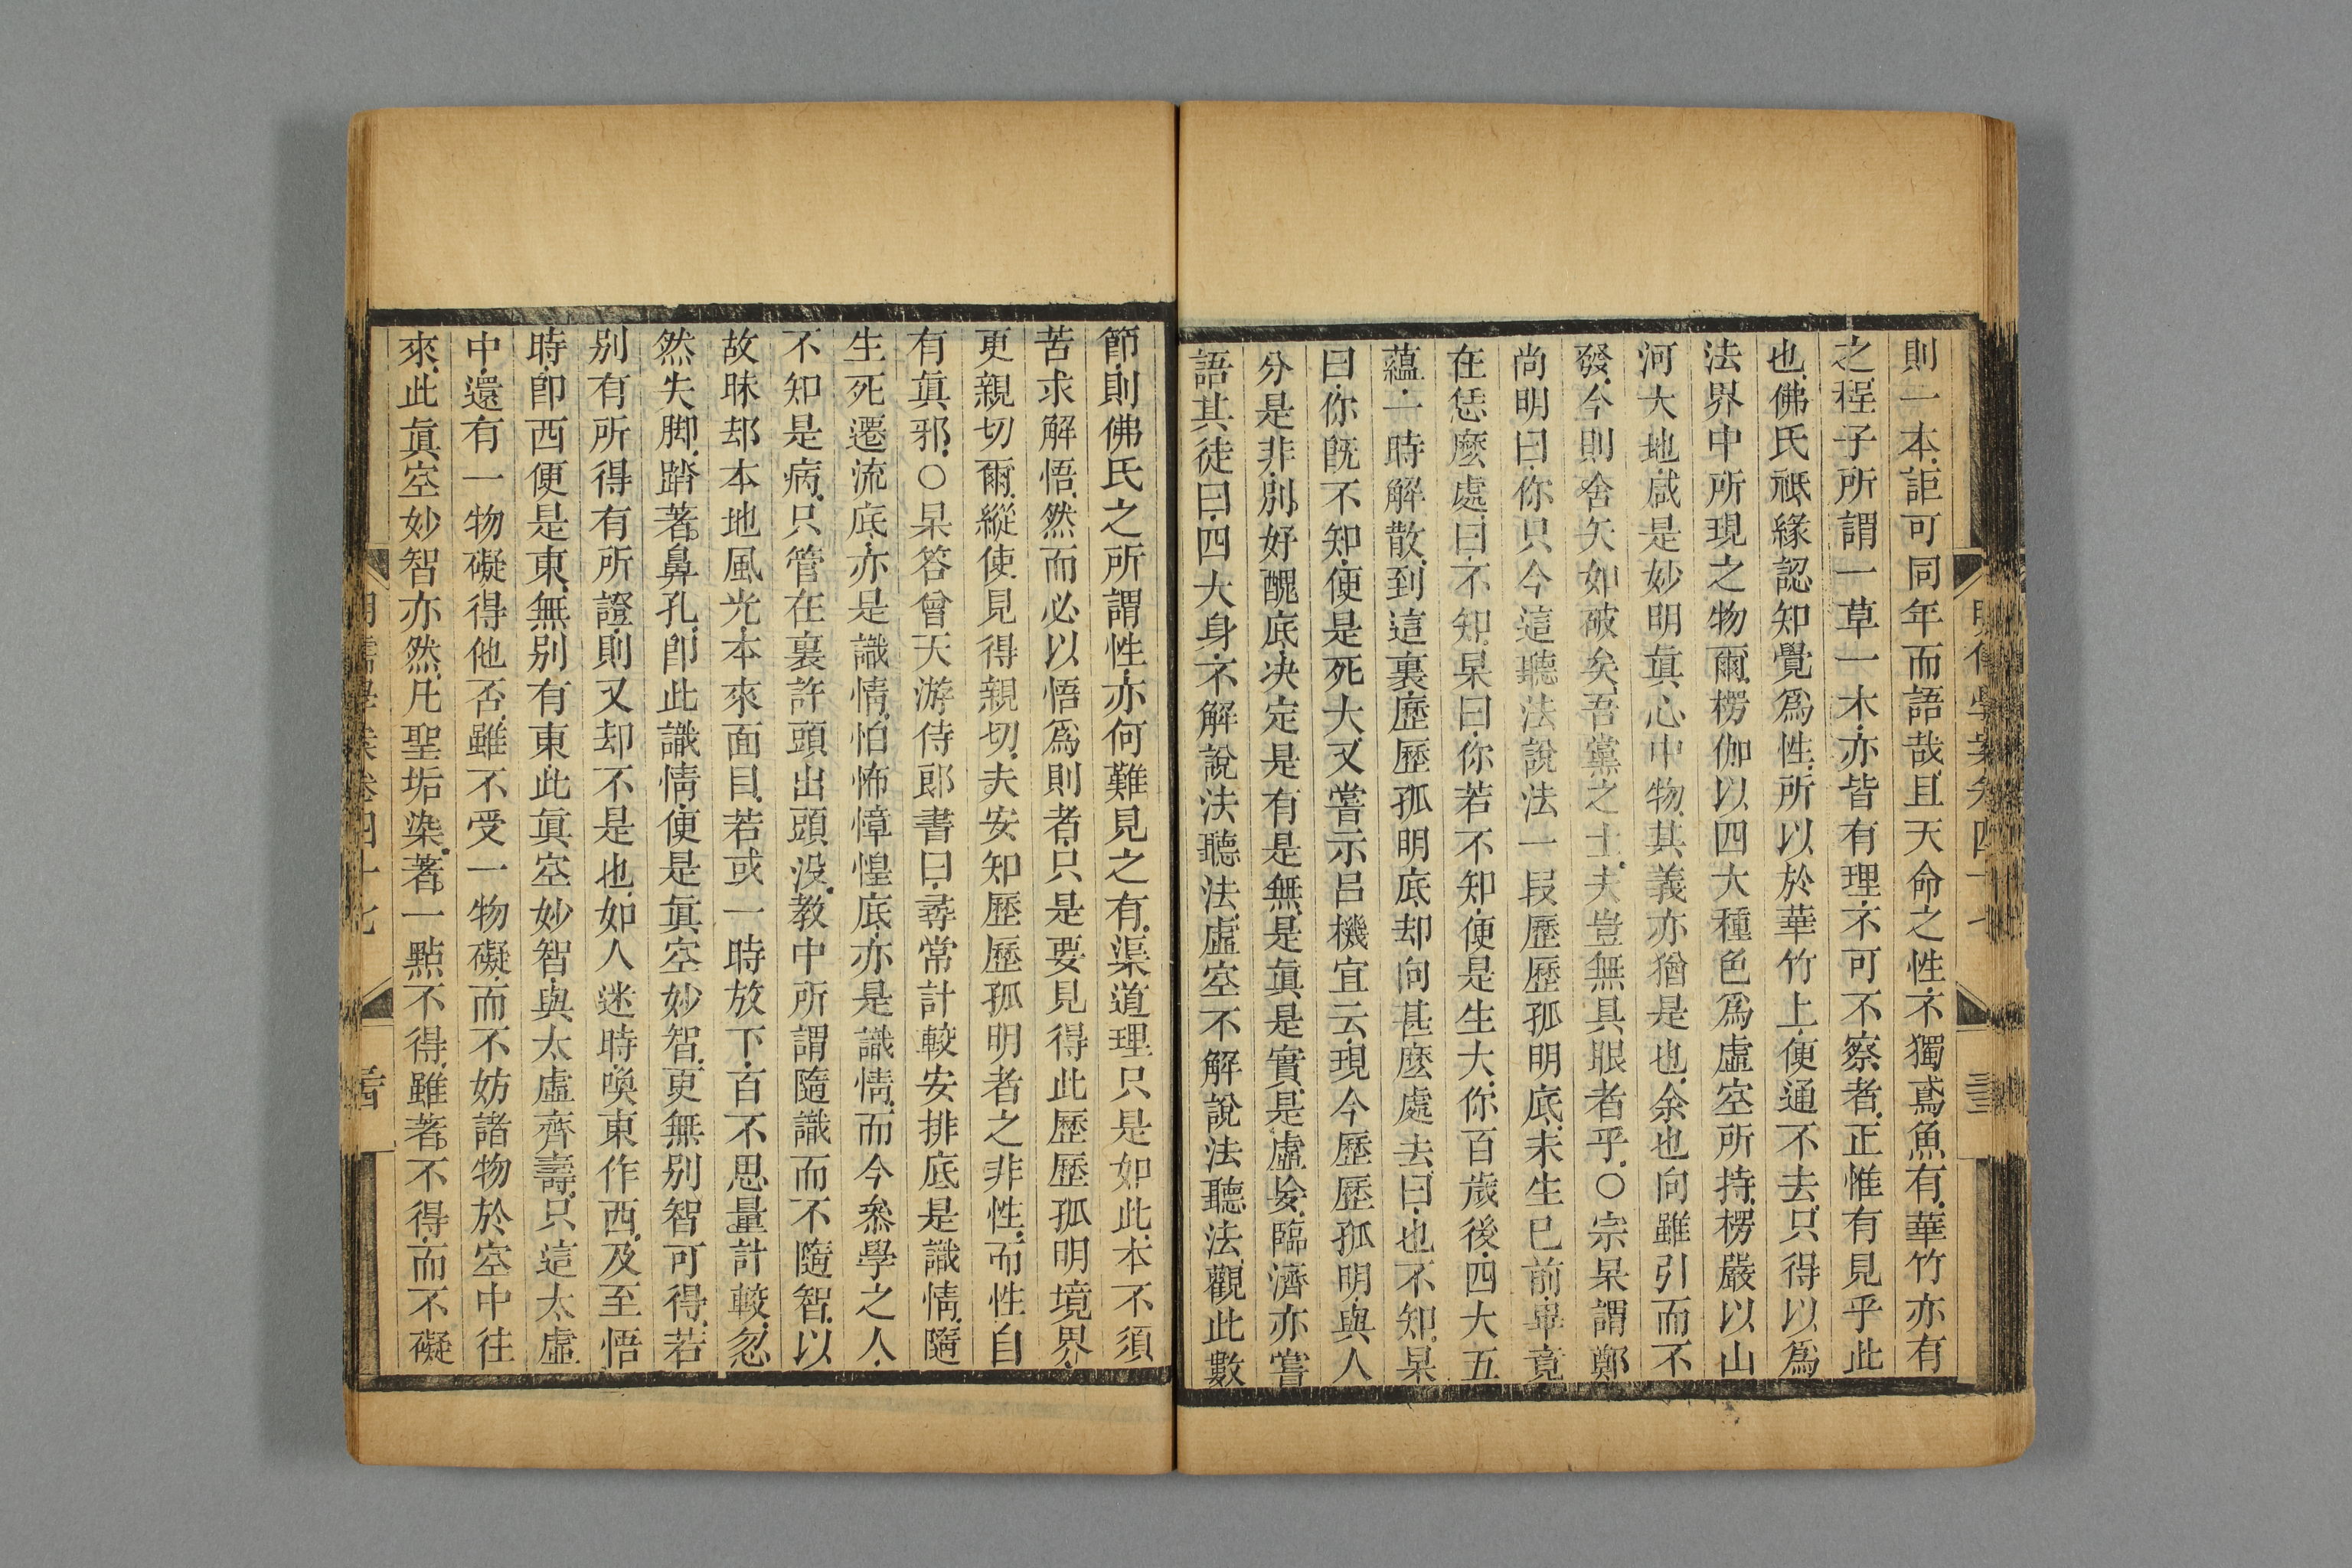 則一本詎可同年而語哉且天命之性不獨鳶魚有華竹亦有
之程子所謂一草一木亦皆有理不可不察者正惟有見乎此
也佛氏祗緣認知覺爲性所以於華竹上便通不去只得以爲
法界中所現之物爾楞伽以四大種色爲虛空所持楞嚴以山
河大地咸是妙明眞心中物其義亦猶是也余也向雖引而不
發今則舍矢如破矣吾黨之士夫豈無具眼者乎○宗杲謂鄭
尚明曰你只今這聽法說法一段歷歷孤明底未生已前畢竟
在恁麼處曰不知杲曰你若不知便是生大你百歲後四大五
蘊一時解散到這裏歷歷孤明底却向甚麼處去曰也不知杲
曰你旣不知便是死大又嘗示呂機宜云現今歷歷孤明與人
分是非別好醜底决定是有是無是眞是實是虛妄臨濟亦嘗
語其徒曰四大身不解說法聽法虛空不解說法聽法觀此數
節則佛氏之所謂性亦何難見之有渠道理只是如此本不須
苦求解悟然而必以悟爲則者只是要見得此歷歷孤明境界
更親切爾縱使見得親切夫安知歷歷孤明者之非性而性自
有眞邪○杲答曾天游侍郎書曰尋常計較安排底是識情隨
生死遷流底亦是識情怕怖慞惶底亦是識情而今參學之人
不知是病只管在裏許頭出頭没教中所謂隨識而不隨智以
故昧却本地風光本來面目若或一時放下百不思量計較忽
然失脚踏著鼻孔卽此識情便是眞空妙智更無別智可得若
別有所得有所證則又却不是也如人迷時喚東作西及至悟
時卽西便是東無別有東此眞空妙智與太虛齊壽只這太虛
中還有一物礙得他否雖不受一物礙而不妨諸物於空中往
來此眞空妙智亦然凡聖垢染著一點不得雖著不得而不礙